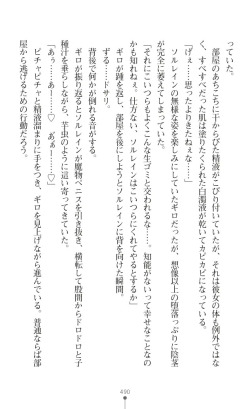 っていた。
　部屋のあちこちに干からびた精液がこびり付いていたが、それは彼女の体も例外ではな
く、すべすべだった肌は塗りたくられた白濁液が乾いてカピカピになっている。
「げぇ……思ったよりきたねぇな……」
　ソルレインの無様な姿を楽しみにしていたギロだったが、想像以上の堕落っぷりに陰茎
が完全に萎えてしまっていた。
「それにこいつらもよくこんな生ゴミと交われるな……。知能がないって幸せなことなの
かも知れねぇ。仕方ない、ソルレインはこいつらにくれてやるとするか」
　ギロが踵を返し、部屋を後にしようとソルレインに背を向けた瞬間。
　ずる……ドサリ。
　背後で何かが倒れる音がする。
　ギロが振り返るとソルレインが魔物ペニスを引き抜き、横転して股間からドロドロと子
種汁を垂らしながら、芋虫のように這い寄ってきていた。
「あぅ……あー……♡　あぅぁー……♡」
　ピチャピチャと精液溜まりに手をつき、ギロを見上げながら進んでいる。普通ならば部
屋から逃げるための行動だろう。
490